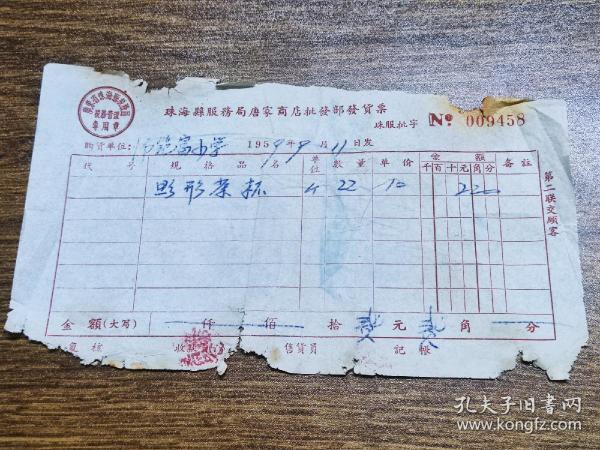 珠海縣服務局唐家商店批發部發貨票
税務管理
專用章
珠服批字 № 009458
購貨單位: 小学 1959年9月11日发
代号 規格品名 單位 數量 單价 金額 備註
千百十元角分
形茶杯 22 10 220
第二联交顾客
金額(大写) 仟 佰 拾 贰 元 贰 角 分
覆核 收 售貨員 記帳
孔夫子旧书网
www.kongfz.com